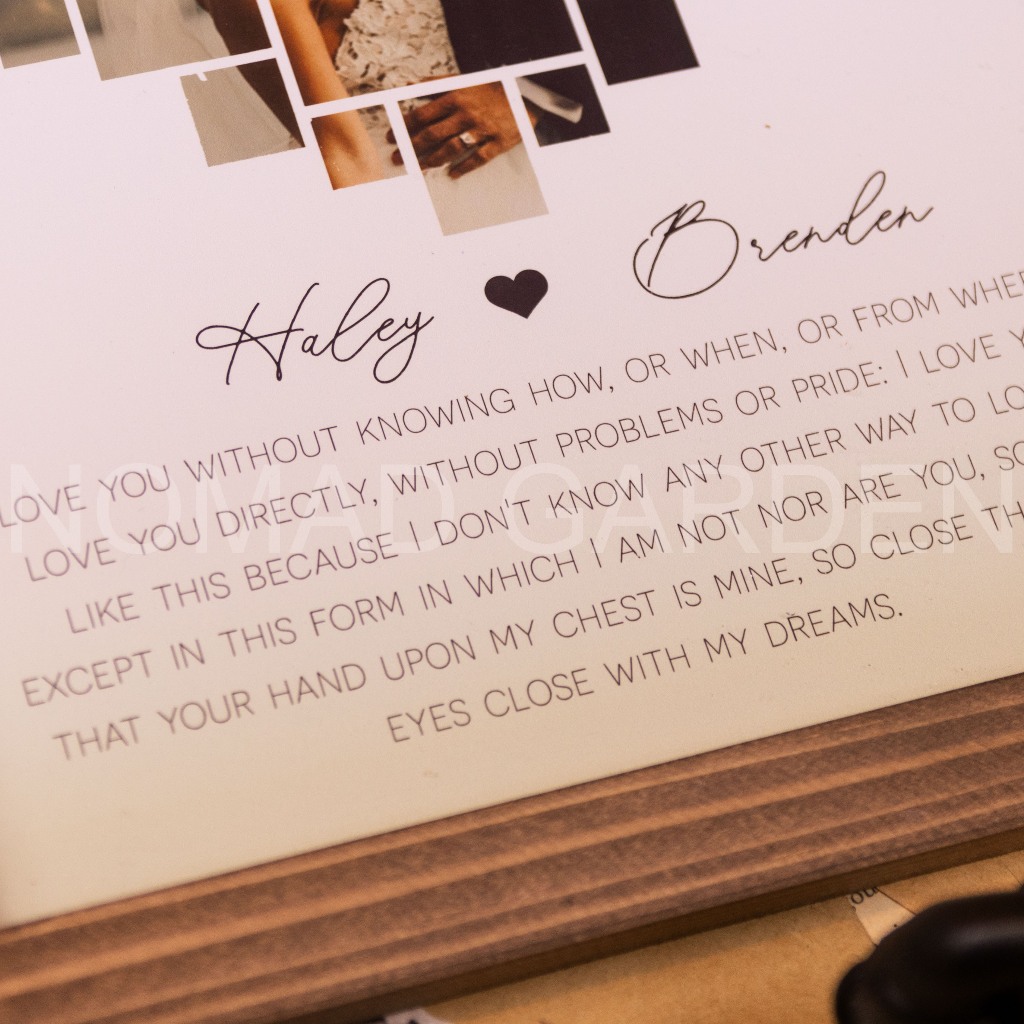 Haley ♥ Brenden
LOVE YOU WITHOUT KNOWING HOW, OR WHEN, OR FROM
LOVE YOU DIRECTLY, WITHOUT PROBLEMS OR PRIDE: I LOVE
LIKE THIS BECAUSE I DON'T KNOW ANY OTHER WAY TO
EXCEPT IN THIS FORM IN WHICH I AM NOT NOR ARE YOU,
THAT YOUR HAND UPON MY CHEST IS MINE, SO CLOSE
EYES CLOSE WITH MY DREAMS.
NOMAD GARDEN